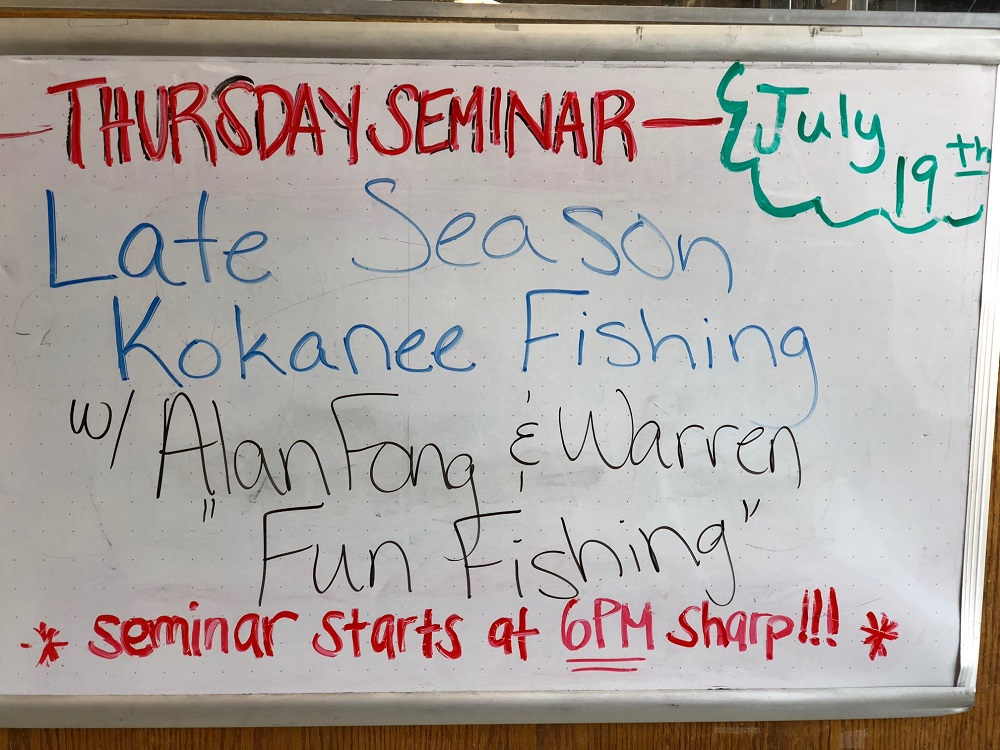 THURSDAY SEMINAR — July 19th
Late Season
Kokanee Fishing
w/ Alan Fong & Warren
"Fun Fishing"
* seminar starts at 6PM sharp!!! *